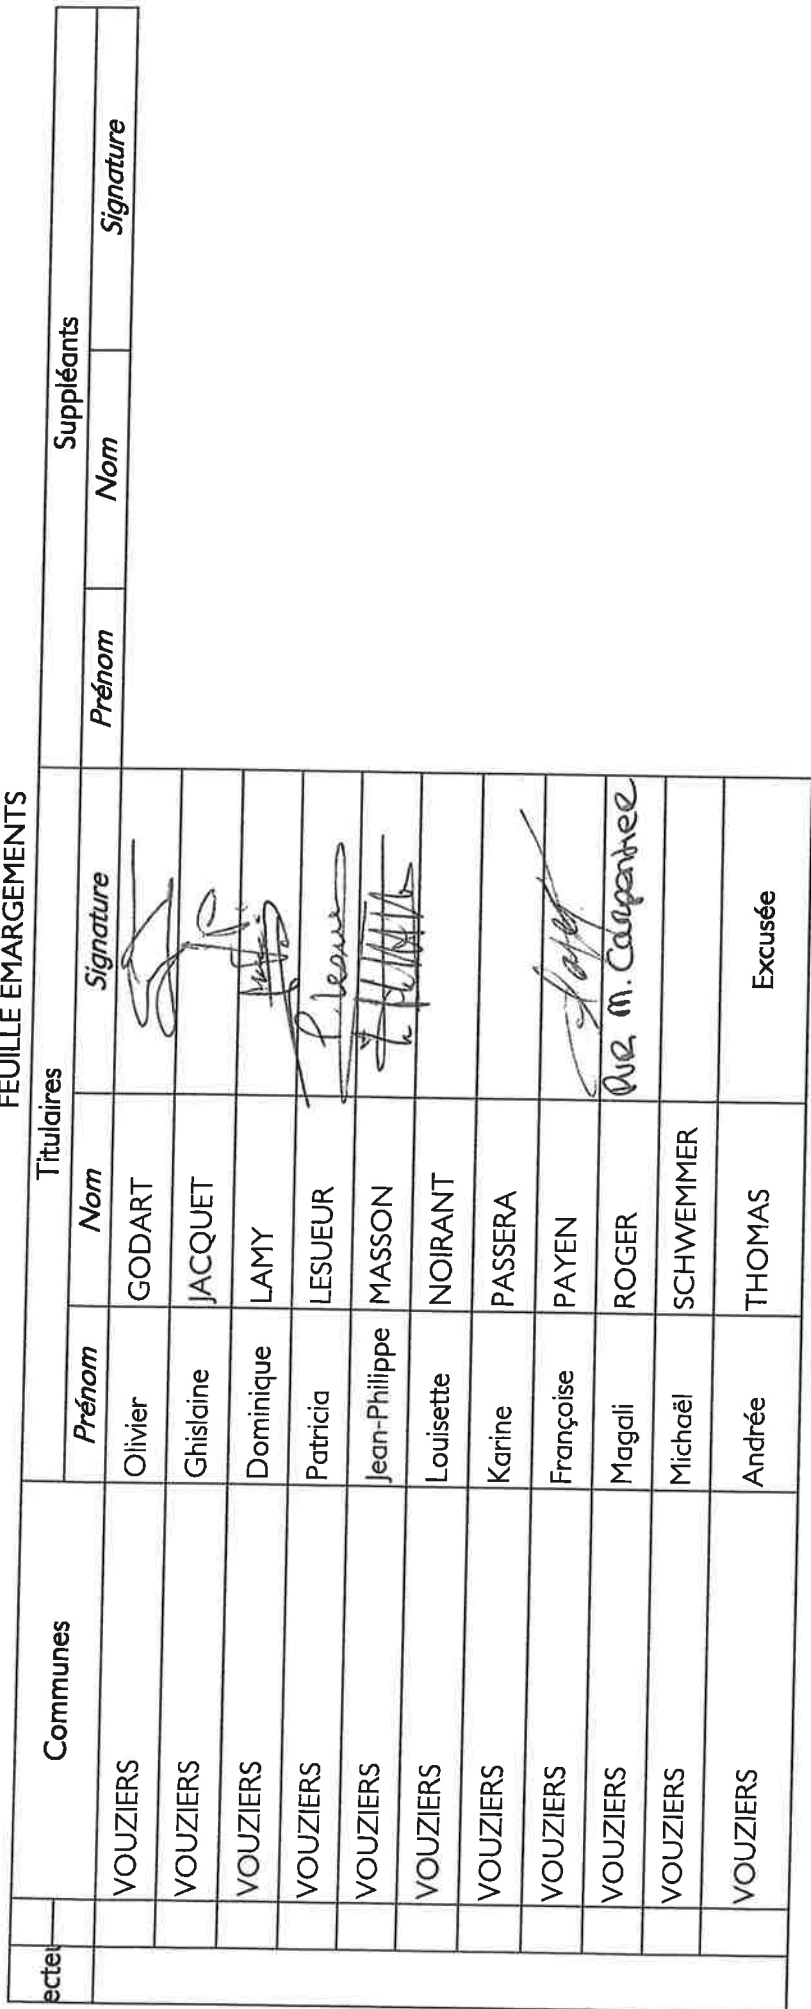 FEUILLE EMARGEMENTS
ecteu Communes Titulaires Suppléants
Prénom Nom Signature Prénom Nom Signature
VOUZIERS Olivier GODART
VOUZIERS Ghislaine JACQUET
VOUZIERS Dominique LAMY
VOUZIERS Patricia LESUEUR P. Lesueur
VOUZIERS Jean-Philippe MASSON
VOUZIERS Louisette NOIRANT
VOUZIERS Karine PASSERA
VOUZIERS Françoise PAYEN
VOUZIERS Magali ROGER M. Carpentier
VOUZIERS Michaël SCHWEMMER
VOUZIERS Andrée THOMAS Excusée